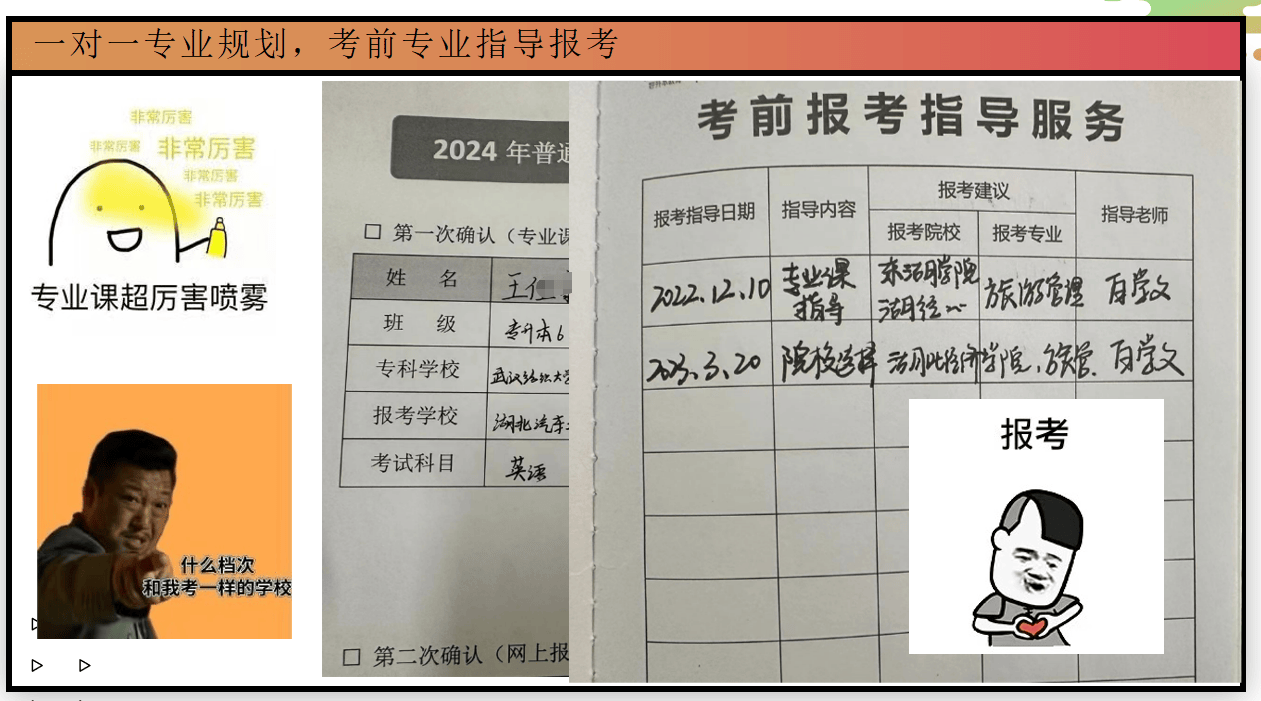 一对一专业规划，考前专业指导报考
非常厉害
非常厉害 非常厉害
非常厉害
非常厉害
专业课超厉害喷雾
什么档次
和我考一样的学校
2024 年普通
□ 第一次确认（专业课
姓 名 王
班 级 专升本6
专科学校 武汉
报考学校 湖北汽车
考试科目 英语
□ 第二次确认（网上报
考前报考指导服务
报考指导日期 指导内容 报考建议 指导老师
报考院校 报考专业
2022.12.10 专业课指导 旅游管理
2023.3.20 院校选择 湖北经济学院、旅管.
报考